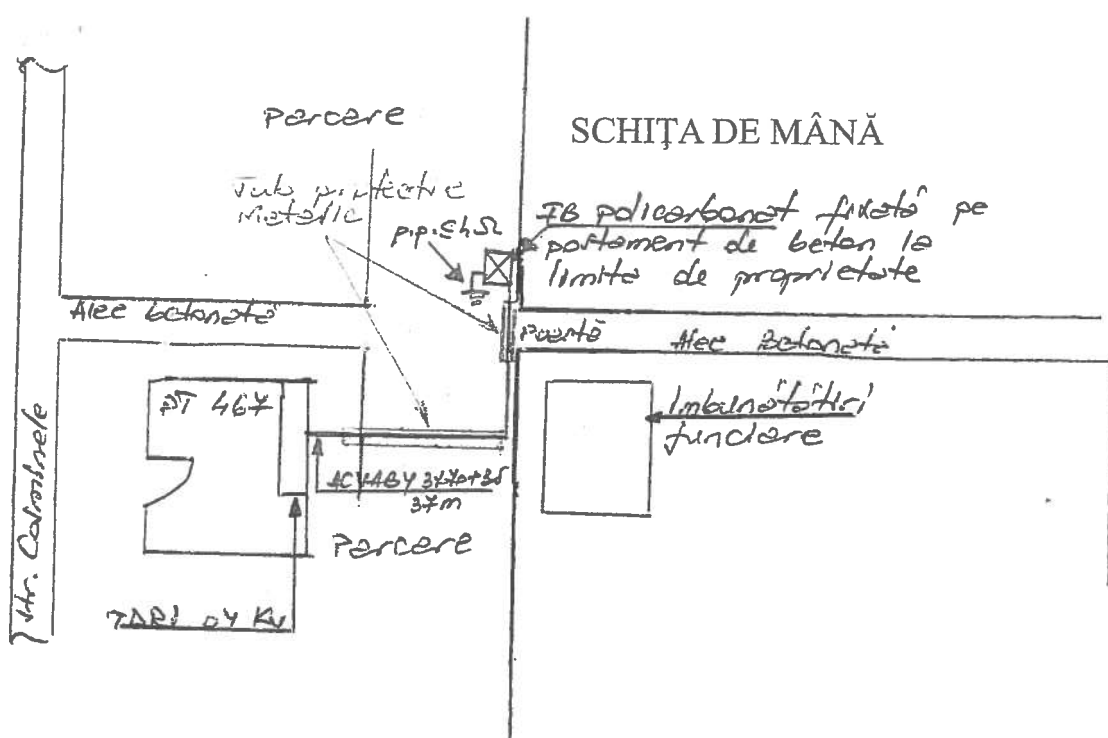 Parcare
SCHIȚA DE MÂNĂ
Tub protectie
Metalic
p.p. ≤4Ω
FB policarbonat fixată pe
postament de beton la
limita de proprietate
Alee betonată
Poartă
Alee Betonată
PT 467
Imbunătățiri
funciare
ACYABY 3x70+35
37m
Parcare
TDRI 04 KV
Str.